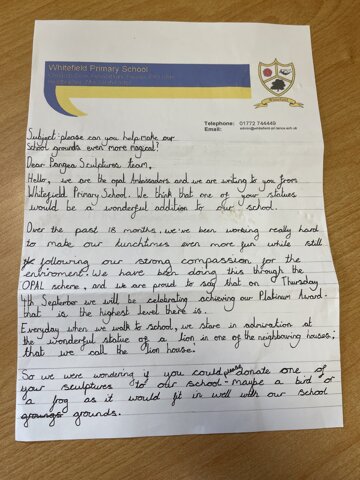 Whitefield Primary School
Whitefield
Telephone: 01772 744449
Email:
Subject: please can you help make our
school grounds even more magical?
Dear Pangea Sculptures team,
Hello, we are the opal Ambassadors and we are writing to you from
Whitefield Primary School. We think that one of your statues
would be a wonderful addition to our school.
Over the past 18 months, we've been working really hard
to make our lunchtimes even more fun while still
following our strong compassion for the
enviroment. We have been doing this through the
OPAL scheme, and we are proud to say that on Thursday
4th September we will be celebrating achieving our Platinum Award-
that is the highest level there is.
Everyday when we walk to school, we stare in admiration at
the wonderful statue of a lion in one of the neighbouring houses;
that we call the 'lion house'.
So we were wondering if you could please donate one of
your sculptures to our school - maybe a bird or
a frog as it would fit in well with our school
groungs grounds.